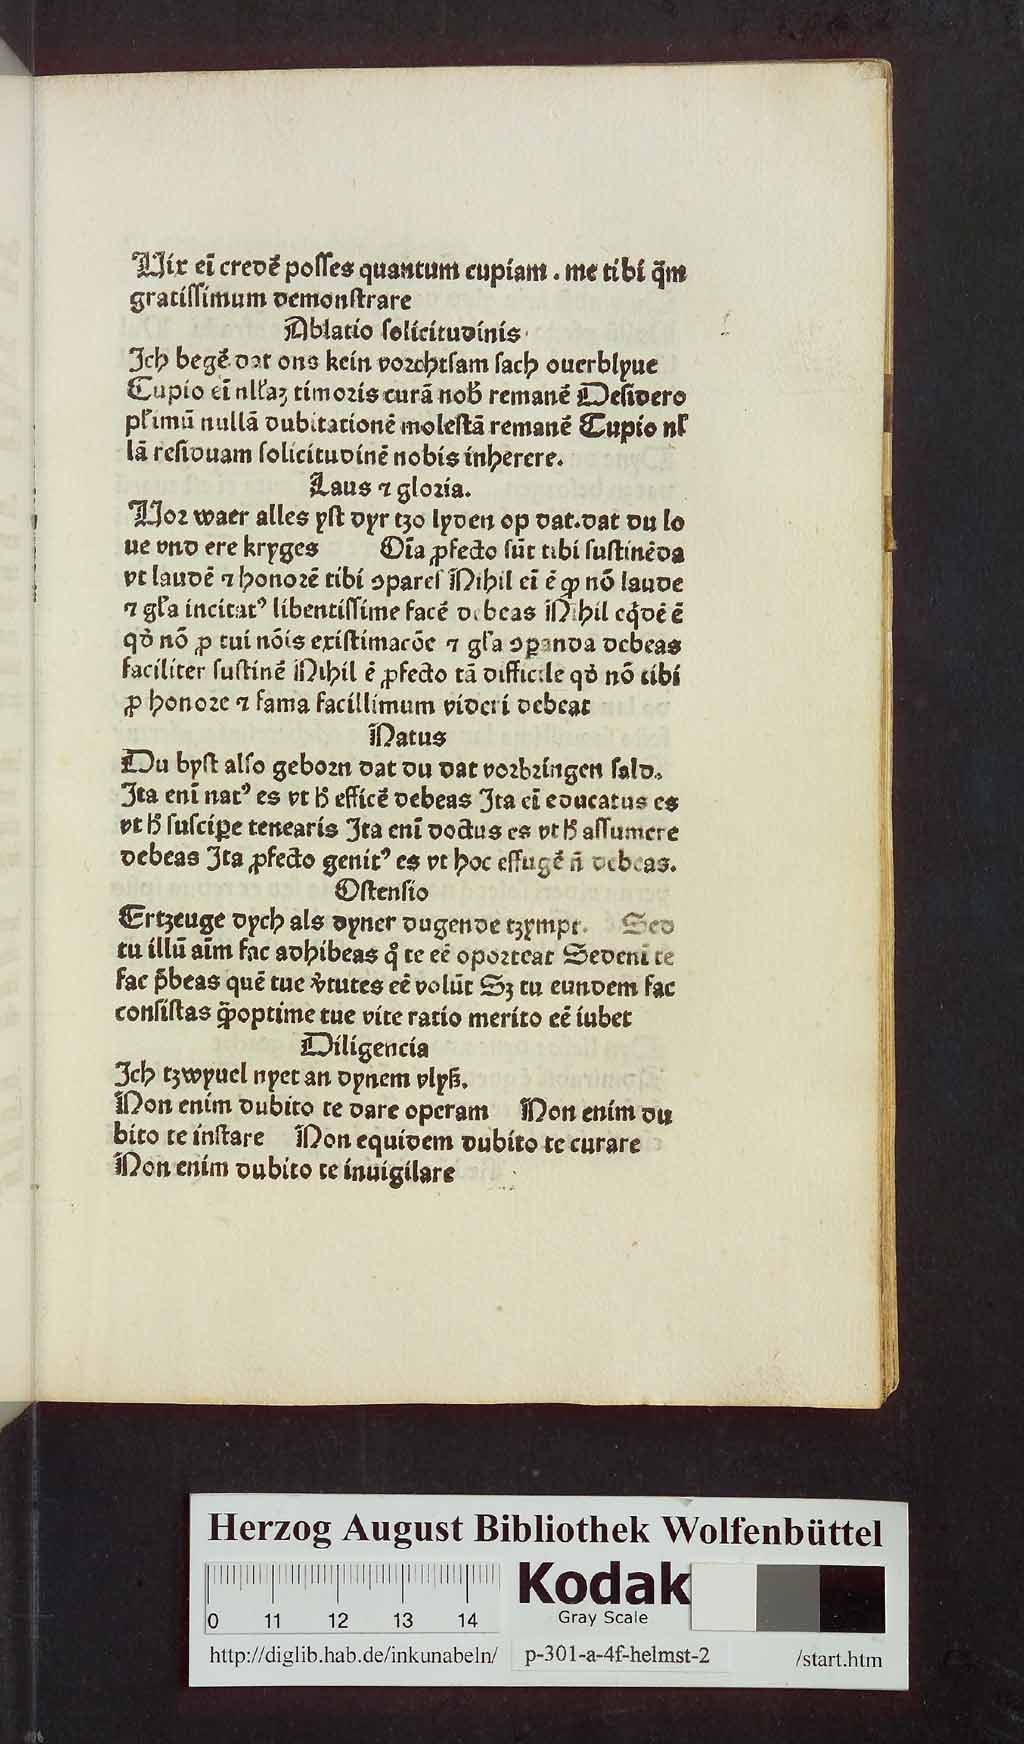 Vix eī credē posses quantum cupiam . me tibi q̄m
gratissimum demonstrare
Ablatio solicitudinis
Ich begē dat ons kein vorchtsam sach ouerblyue
Cupio eī nllaʒ timoris curā nob̄ remanē Desidero
plimū nullā dubitationē molestā remanē Cupio nl
lā residuam solicitudinē nobis inherere.
Laus ⁊ gloria.
Vor waer alles yst dyr tzo lyden op dat.dat du lo
ue vnd ere kryges Oīa ꝓfecto sūt tibi sustinēda
vt laudē ⁊ honorē tibi ꝯpares Nihil eī ē qđ nō laude
⁊ gła incitatꝰ libentissime facē debeas Nihil eq̇dē ē
qđ nō ꝓ tui nōis existimacōe ⁊ gła ꝯꝑanda debeas
faciliter sustinē Nihil ē ꝓfecto tā difficile qđ nō tibi
ꝓ honore ⁊ fama facillimum videri debeat
Natus
Du byst also geborn dat du dat vorbringen sald.
Ita enī natꝰ es vt h̄ efficē debeas Ita eī educatus es
vt h̄ susciꝑe tenearis Ita enī doctus es vt h̄ assumere
debeas Ita ꝓfecto genitꝰ es vt hoc effugē n̄ debeas.
Ostensio
Ertzeuge dych als dyner dugende tzympt. Sed
tu illū aīm fac adhibeas q̊ te eē oporteat Sedenī te
fac p̄beas quē tue v̓tutes eē volūt Sꝫ tu eundem fac
consistas q̄optime tue vite ratio merito eē iubet
Diligencia
Ich tzwyuel nyet an dynem vlyß.
Non enim dubito te dare operam Non enim du
bito te instare Non equidem dubito te curare
Non enim dubito te inuigilare
Herzog August Bibliothek Wolfenbüttel
Kodak
Gray Scale
0 11 12 13 14
http://diglib.hab.de/inkunabeln/ p-301-a-4f-helmst-2 /start.htm